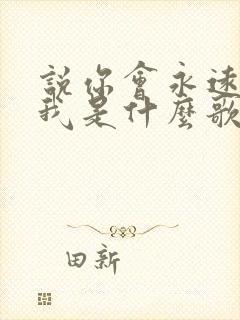 說你會永遠
我是什麼歌
田新